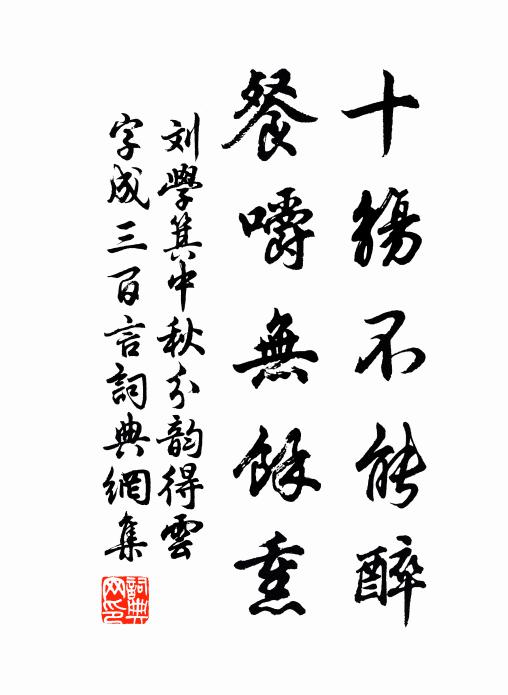 十觴不能醉
餐嚼無餘熏
刘學箕中秋分韵得雲
字成三百言詞典網集